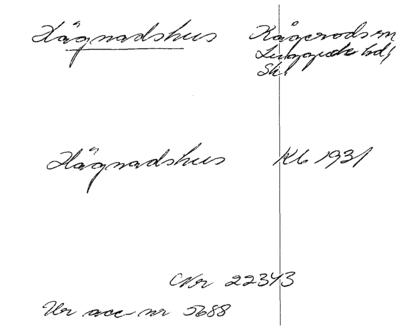 Hägnadshus Kågeröds sn
Luggude hd,
Sk.
Hägnadshus Kb 1931
Nr 22343
Ur acc nr 5688